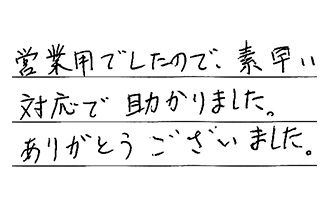 営業用でしたので、素早い
対応で助かりました。
ありがとうございました。